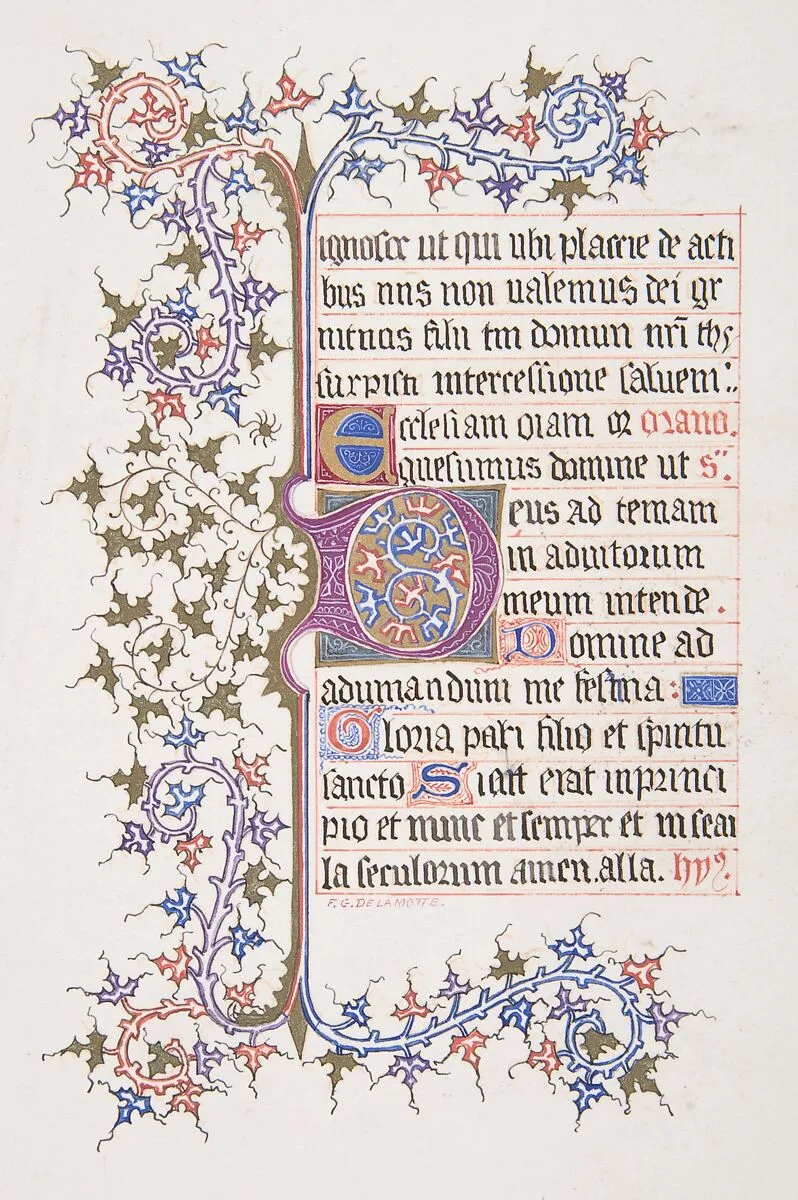 ignosce ut qui ubi placere de acti
bus nns non ualemus dei gr
nitricis filii tm domun nrī ihs
surpisti intercessione saluem :.
Ecclesiam oram or orano.
quesumus domine ut s".
Deus ad temam
in aduitorum
meum intende .
Domine ad
adumandum me festina :
Gloria patri filio et spiritu
sancto Sicut erat inprinci
pio et nunc et semper et in secu
la seculorum amen.alla. hy?.
F.G.DELAMOTTE.